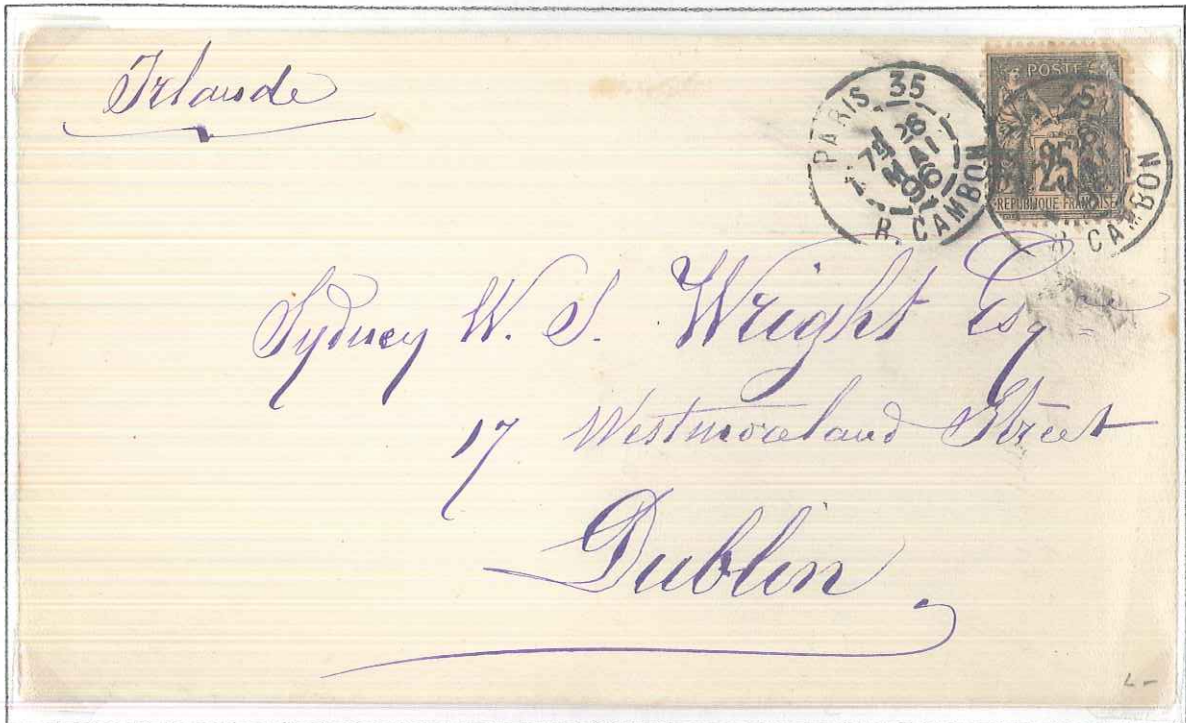 Irlande
PARIS 35
26
MAI
96
R. CAMBON
POSTES
25
REPUBLIQUE FRANÇAISE
R. CAMBON
Sydney W. S. Wright Esq
17 Westmoreland Street
Dublin